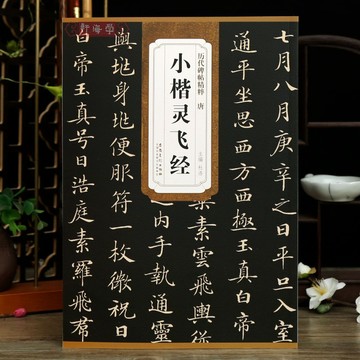 历代碑帖精粹 唐
小楷灵飞经
主编
七月八月庚辛之日平旦入室
通平坐思西方西極玉真白帝
素雲飛輿從
内手執通靈
與地身地便服符一枚微祝曰
白帝玉真号曰浩庭素羅飛帬